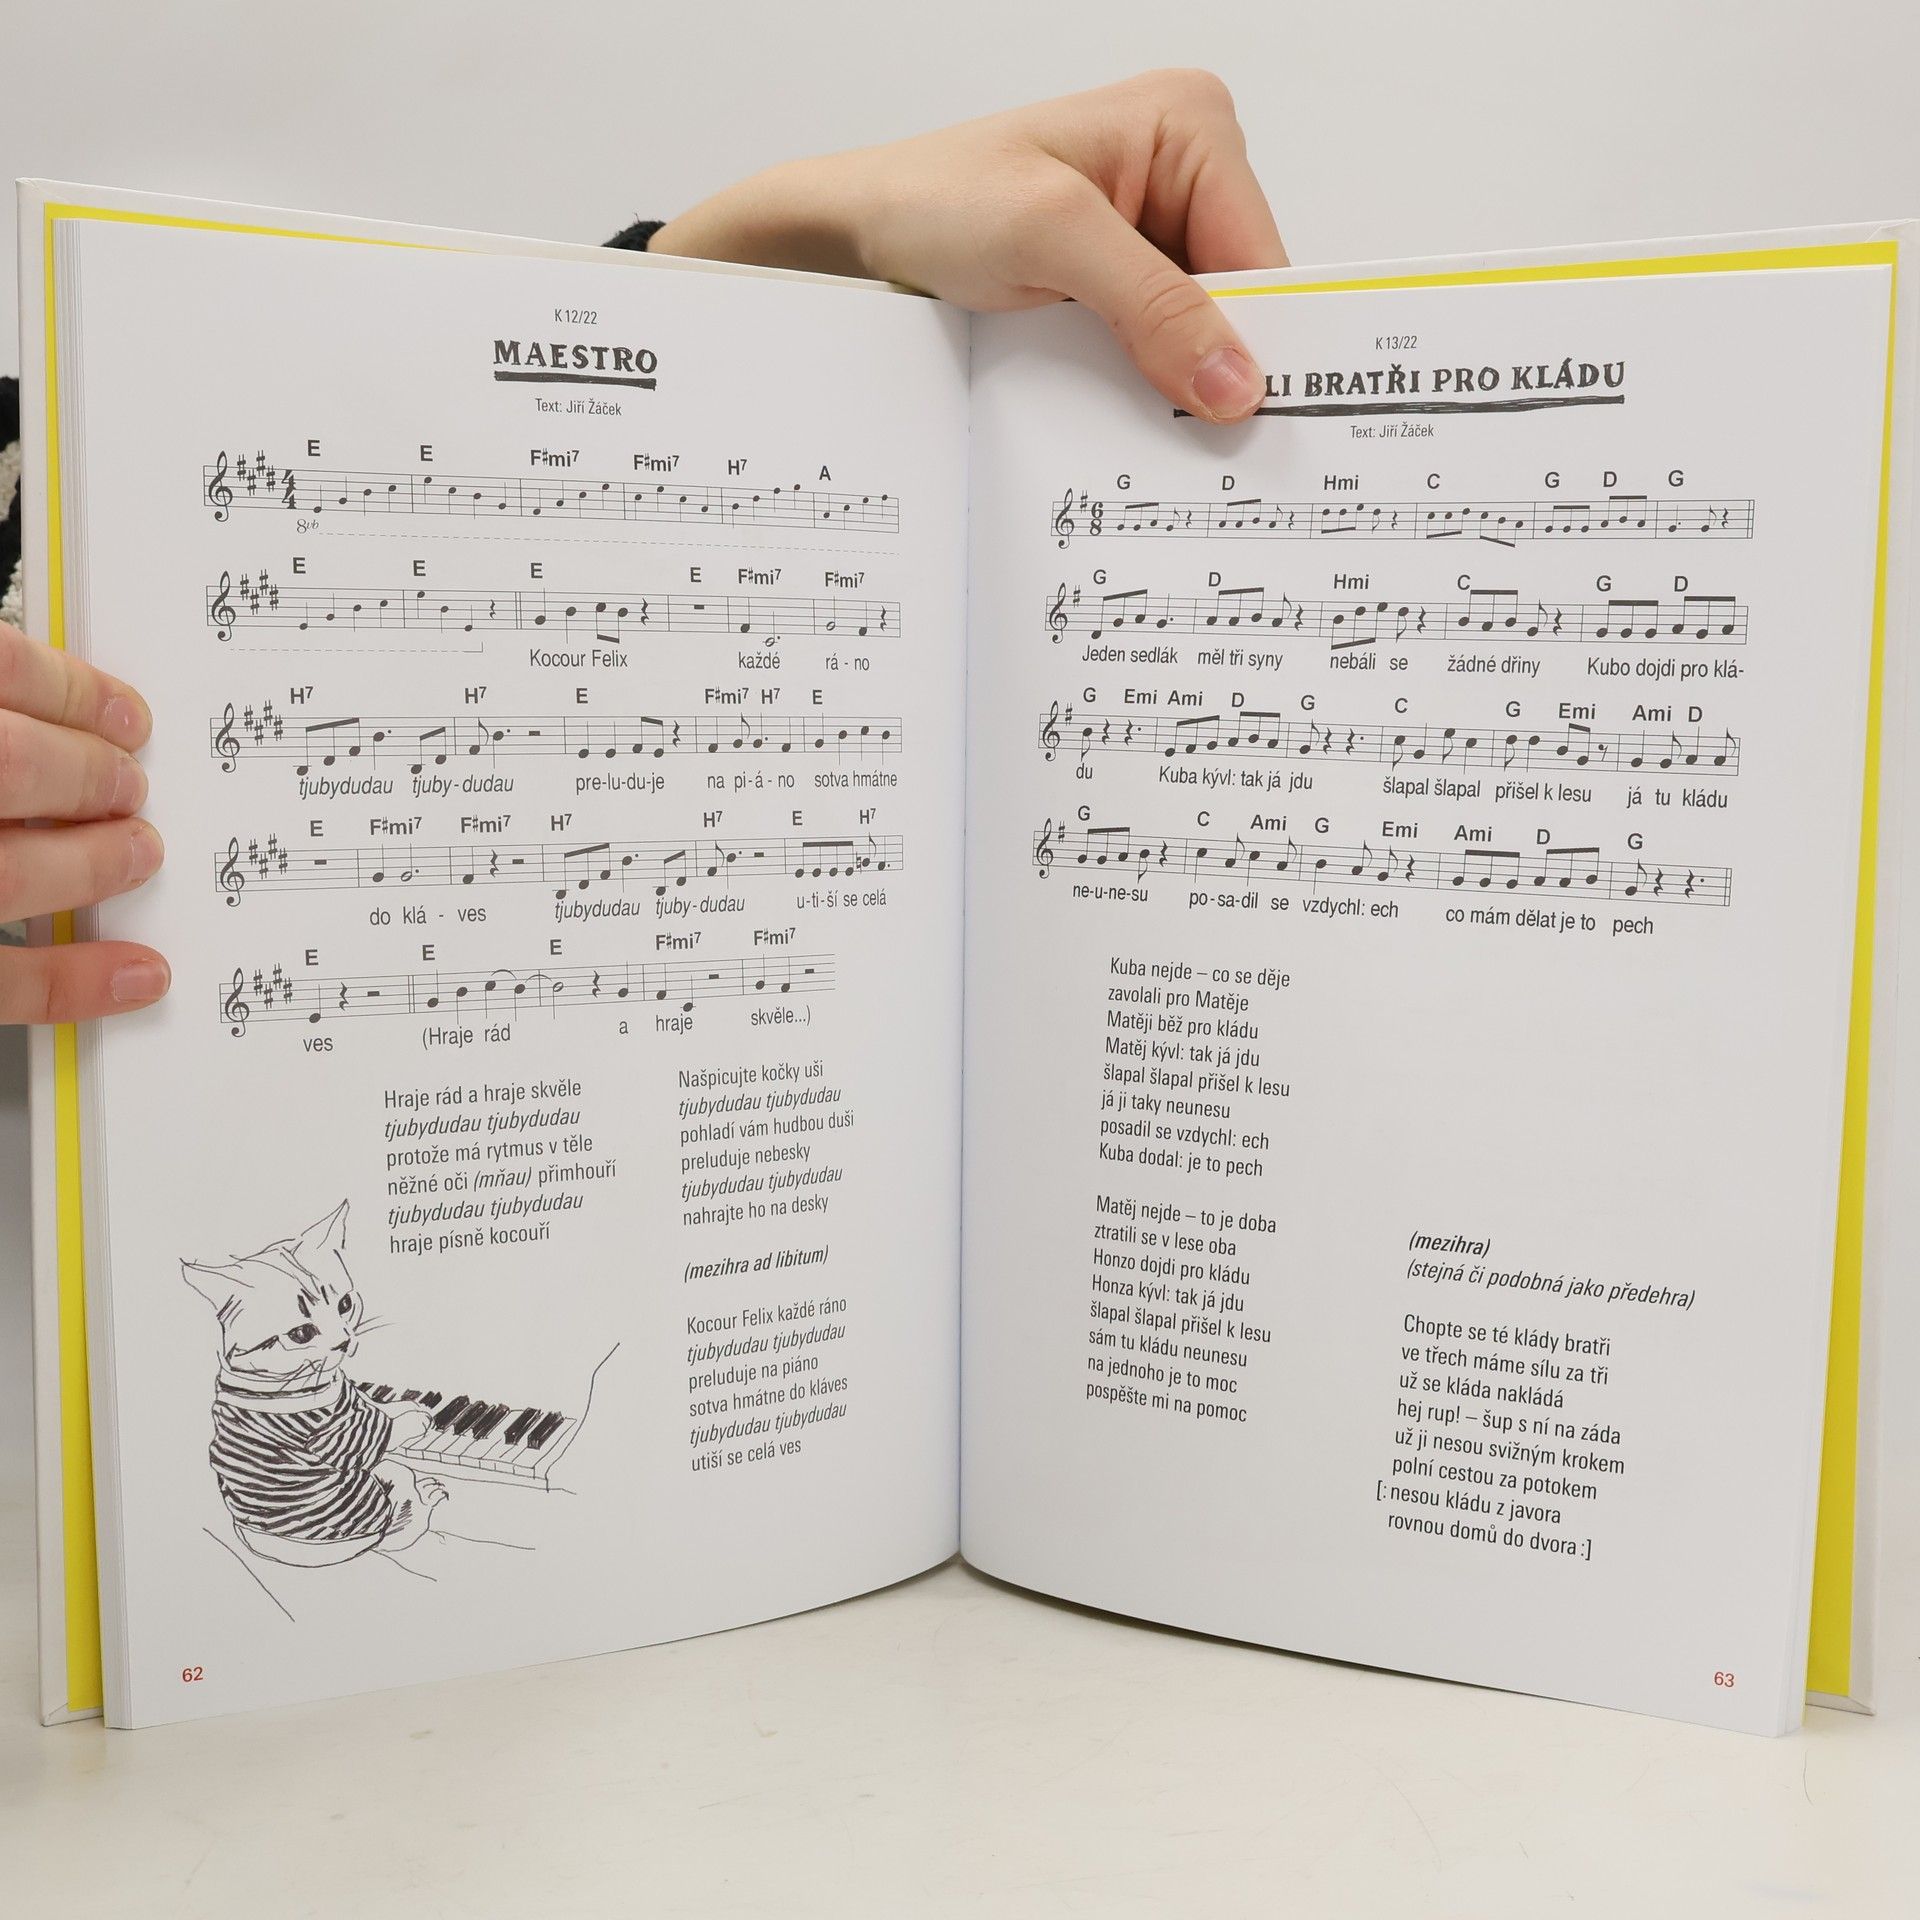 K 12/22
MAESTRO
Text: Jiří Žáček
E E F#mi7 F#mi7 H7 A
4
4
8vb
E E E E F#mi7 F#mi7
Kocour Felix každé rá - no
H7 H7 E F#mi7 H7 E
tjubydudau tjuby-dudau pre-lu-du-je na pi-á-no sotva hmátne
E F#mi7 F#mi7 H7 H7 E H7
do klá - ves tjubydudau tjuby-dudau u-ti-ší se celá
E E E F#mi7 F#mi7
ves (Hraje rád a hraje skvěle...)
Hraje rád a hraje skvěle
tjubydudau tjubydudau
protože má rytmus v těle
něžné oči (mňau) přimhouří
tjubydudau tjubydudau
hraje písně kocouří
Našpicujte kočky uši
tjubydudau tjubydudau
pohladí vám hudbou duši
preluduje nebesky
tjubydudau tjubydudau
nahrajte ho na desky
(mezihra ad libitum)
Kocour Felix každé ráno
tjubydudau tjubydudau
preluduje na piáno
sotva hmátne do kláves
tjubydudau tjubydudau
utiší se celá ves
62
K 13/22
LI BRATŘI PRO KLÁDU
Text: Jiří Žáček
G D Hmi C G D G
6
8
G D Hmi C G D
Jeden sedlák měl tři syny nebáli se žádné dřiny Kubo dojdi pro klá-
G Emi Ami D G C G Emi Ami D
du Kuba kývl: tak já jdu šlapal šlapal přišel k lesu já tu kládu
G C Ami G Emi Ami D G
ne-u-ne-su po-sa-dil se vzdychl: ech co mám dělat je to pech
Kuba nejde – co se děje
zavolali pro Matěje
Matěji běž pro kládu
Matěj kývl: tak já jdu
šlapal šlapal přišel k lesu
já ji taky neunesu
posadil se vzdychl: ech
Kuba dodal: je to pech
Matěj nejde – to je doba
ztratili se v lese oba
Honzo dojdi pro kládu
Honza kývl: tak já jdu
šlapal šlapal přišel k lesu
sám tu kládu neunesu
na jednoho je to moc
pospěšte mi na pomoc
(mezihra)
(stejná či podobná jako předehra)
Chopte se té klády bratři
ve třech máme sílu za tři
už se kláda nakládá
hej rup! – šup s ní na záda
už ji nesou svižným krokem
polní cestou za potokem
[: nesou kládu z javora
rovnou domů do dvora :]
63